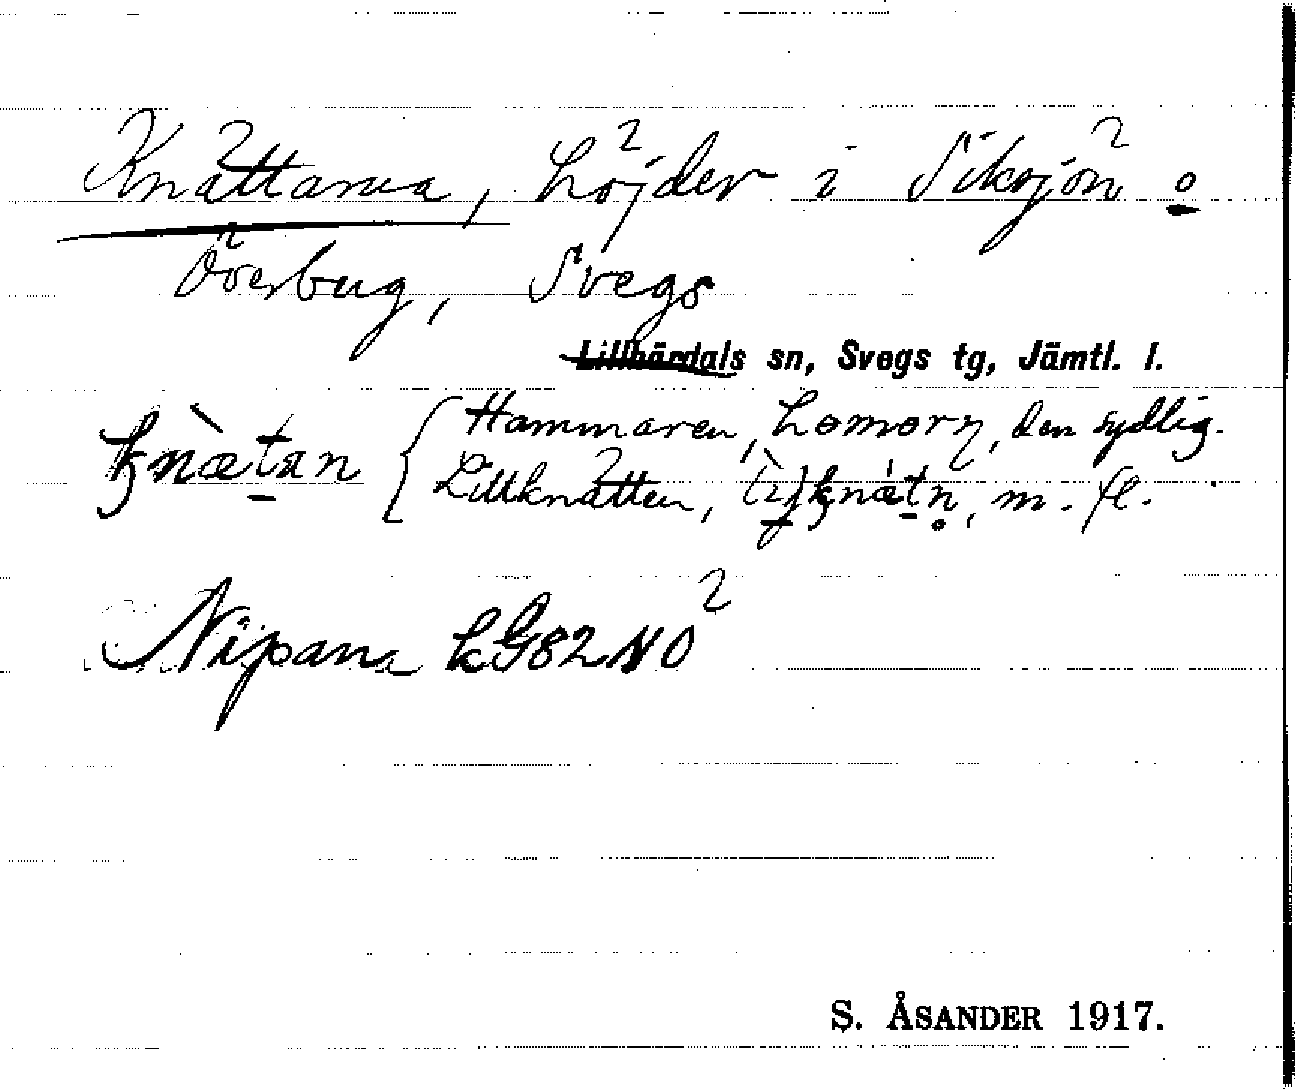 Knättarna, höjder i Siksjön o
Överbyg, Svegs
Lillhärdals sn, Svegs tg, Jämtl. l.
knætan { Hammaren, hamorn, den sydlig.
Lillknätten, m. fl.
Nipana kG82NO2
S. ÅSANDER 1917.